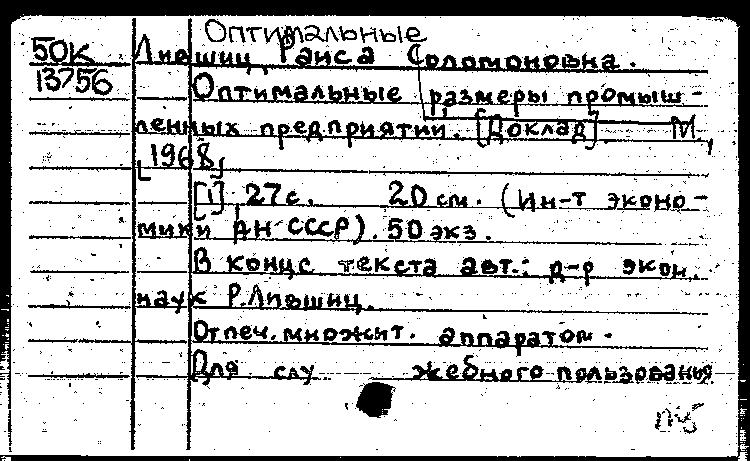 Оптимальные
50К Лившиц, Раиса Соломоновна.
13756 Оптимальные размеры промыш-
ленных предприятий. [Доклад]. М.,
[1968]
[1], 27с. 20 см. (Ин-т эконо-
мики АН СССР). 50 экз.
В конце текста авт.: д-р экон.
наук Р.Лившиц.
Отпеч. множит. аппаратом.
Для служебного пользованья